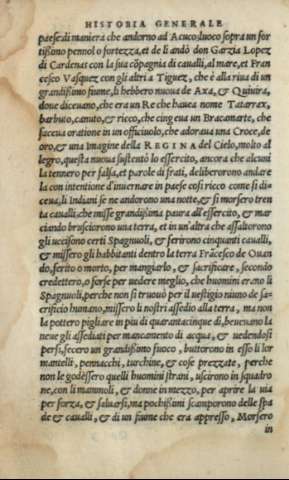 HISTORIA GENERALE
paese: di maniera che andorno ad Acuco, luoco sopra un for
tißimo pennol o fortezza, et de li andò don Garzia Lopez
di Cardenas con la sua cōpagnia di caualli, al mare, et Fran
cesco Vasquez con gli altri a Tiguez, che è alla riua di un
grandißimo fiume, li hebbero nuoua de Axa, & Quiuira,
doue diceuano, che era un Re che haueua nome Tatarrax,
barbuto, canuto, & ricco, che cingeua un Bracamarte, che
faceua oratione in un officiuolo, che adoraua una Croce, de
oro, & una Imagine della REGINA del Cielo, molto al
legro, questa nuoua sustentò lo essercito, ancora che alcuni
la tennero per falsa, et parole di frati, deliberorono andare
la con intentione d'inuernare in paese cosi ricco come si di-
ceua, li Indiani se ne andorono una notte, & si morsero tren
ta caualli, che misse grandißima paura all'essercito, & mar
ciando brusciorono una terra, et in un'altra che assaltorono
gli uccisono certi Spagnuoli, & ferirono cinquanti caualli,
& missero gli habbitanti dentro la terra Frācesco de Ouan
do, ferito o morto, per mangiarlo, & sacrificare, secondo
credettero, o forse per uedere meglio, che huomini erano li
Spagnuoli, perche non si truouò per il uestigio niuno de sa-
crificio humano, missero li nostri assedio alla terra, ma non
la pottero pigliare in piu di quarantacinque dì, beueuano la
neue gli assediati per mancamento di acqua, & uedendosi
persi, fecero un grandißimo fuoco, buttorono in esso li lor
mantelli, pennacchi, turchine, & cose prezzate, perche
non le godessero quelli huomini strani, uscirono in squadro
ne, con li mammoli, & donne in mezzo, per aprire la uia
per forza, & saluarsi, ma pochißimi scamporono delle spa
de & caualli, & di un fiume che era appresso, Morsero
in